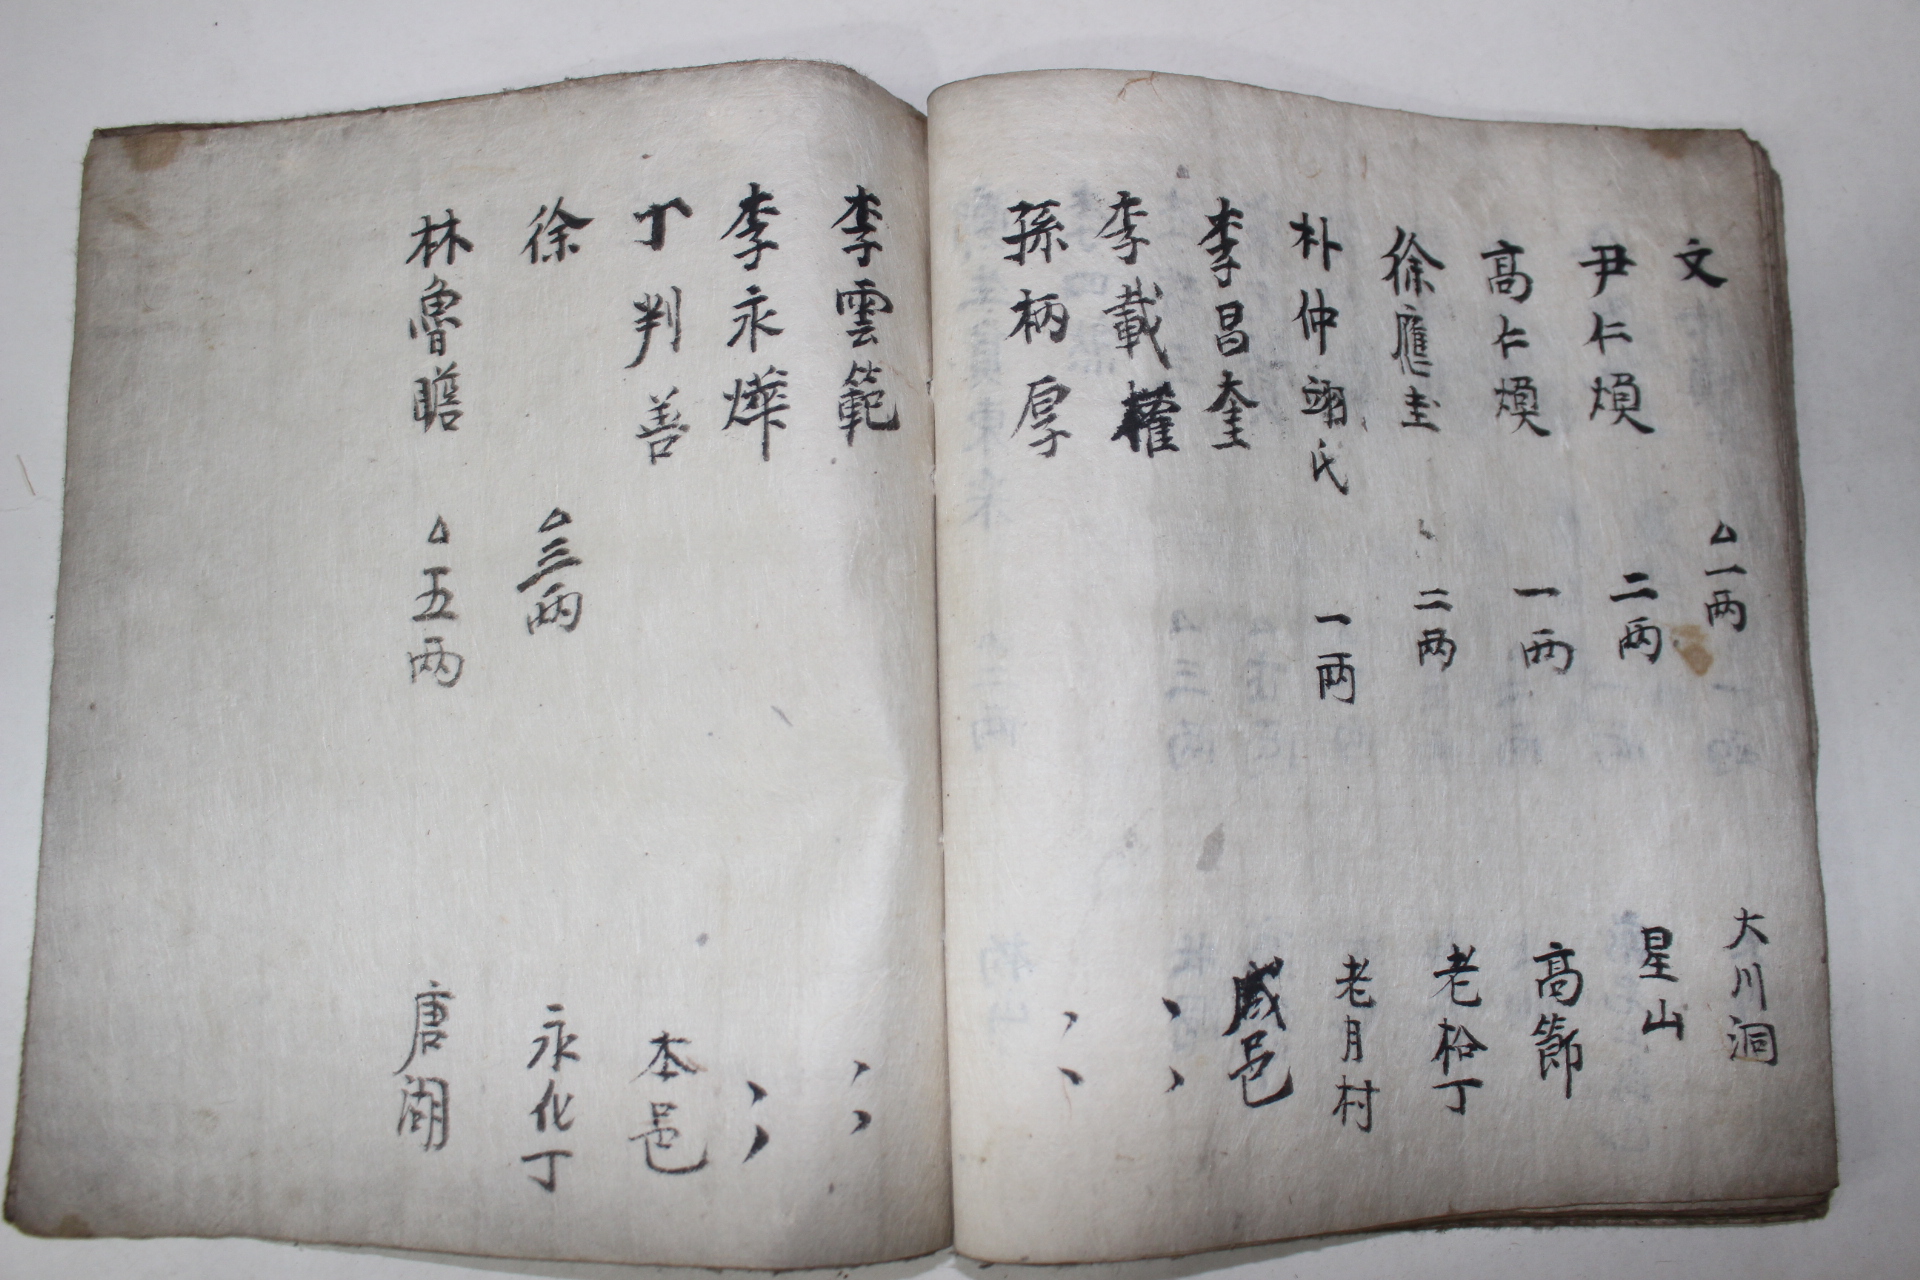 文 一両 大川洞
尹仁煩 二両 星山
高仁煥 一両 高節
徐應圭 二両 老松丁
朴仲翊氏 一両 老月村
李昌奎 咸邑
李載權 〃
孫柄厚 〃
李雲範 〃
李永燁 〃
丁判善 本邑
徐 三両 永化丁
林魯瞻 五両 唐湖